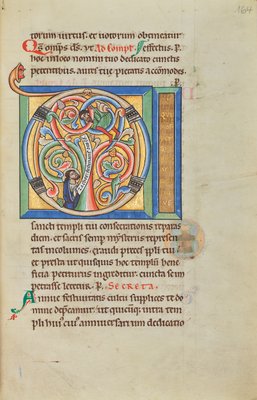 164
torum uirtus, et uotorum obtineatur
Qs omps ds. ut Ad Compl. effectus. P
hoc in loco nomini tuo dedicato cunctis
petentibus aures tue pietatis accomodes.
P.
D
sancti templi tui consecrationis reparas
diem. et sacris semp mysteriis represen
tas incolumes. exaudi preces ppli tui
et presta ut quisquis hoc templum bene
ficia petiturus ingreditur, cuncta se im
petrasse letetur. P. SECRETA.
Annue
festiuitatis
tui supplices te do
mine deprecamur. ut quicunq; intra tem
pli huius cuius anniuersarium dedicatio